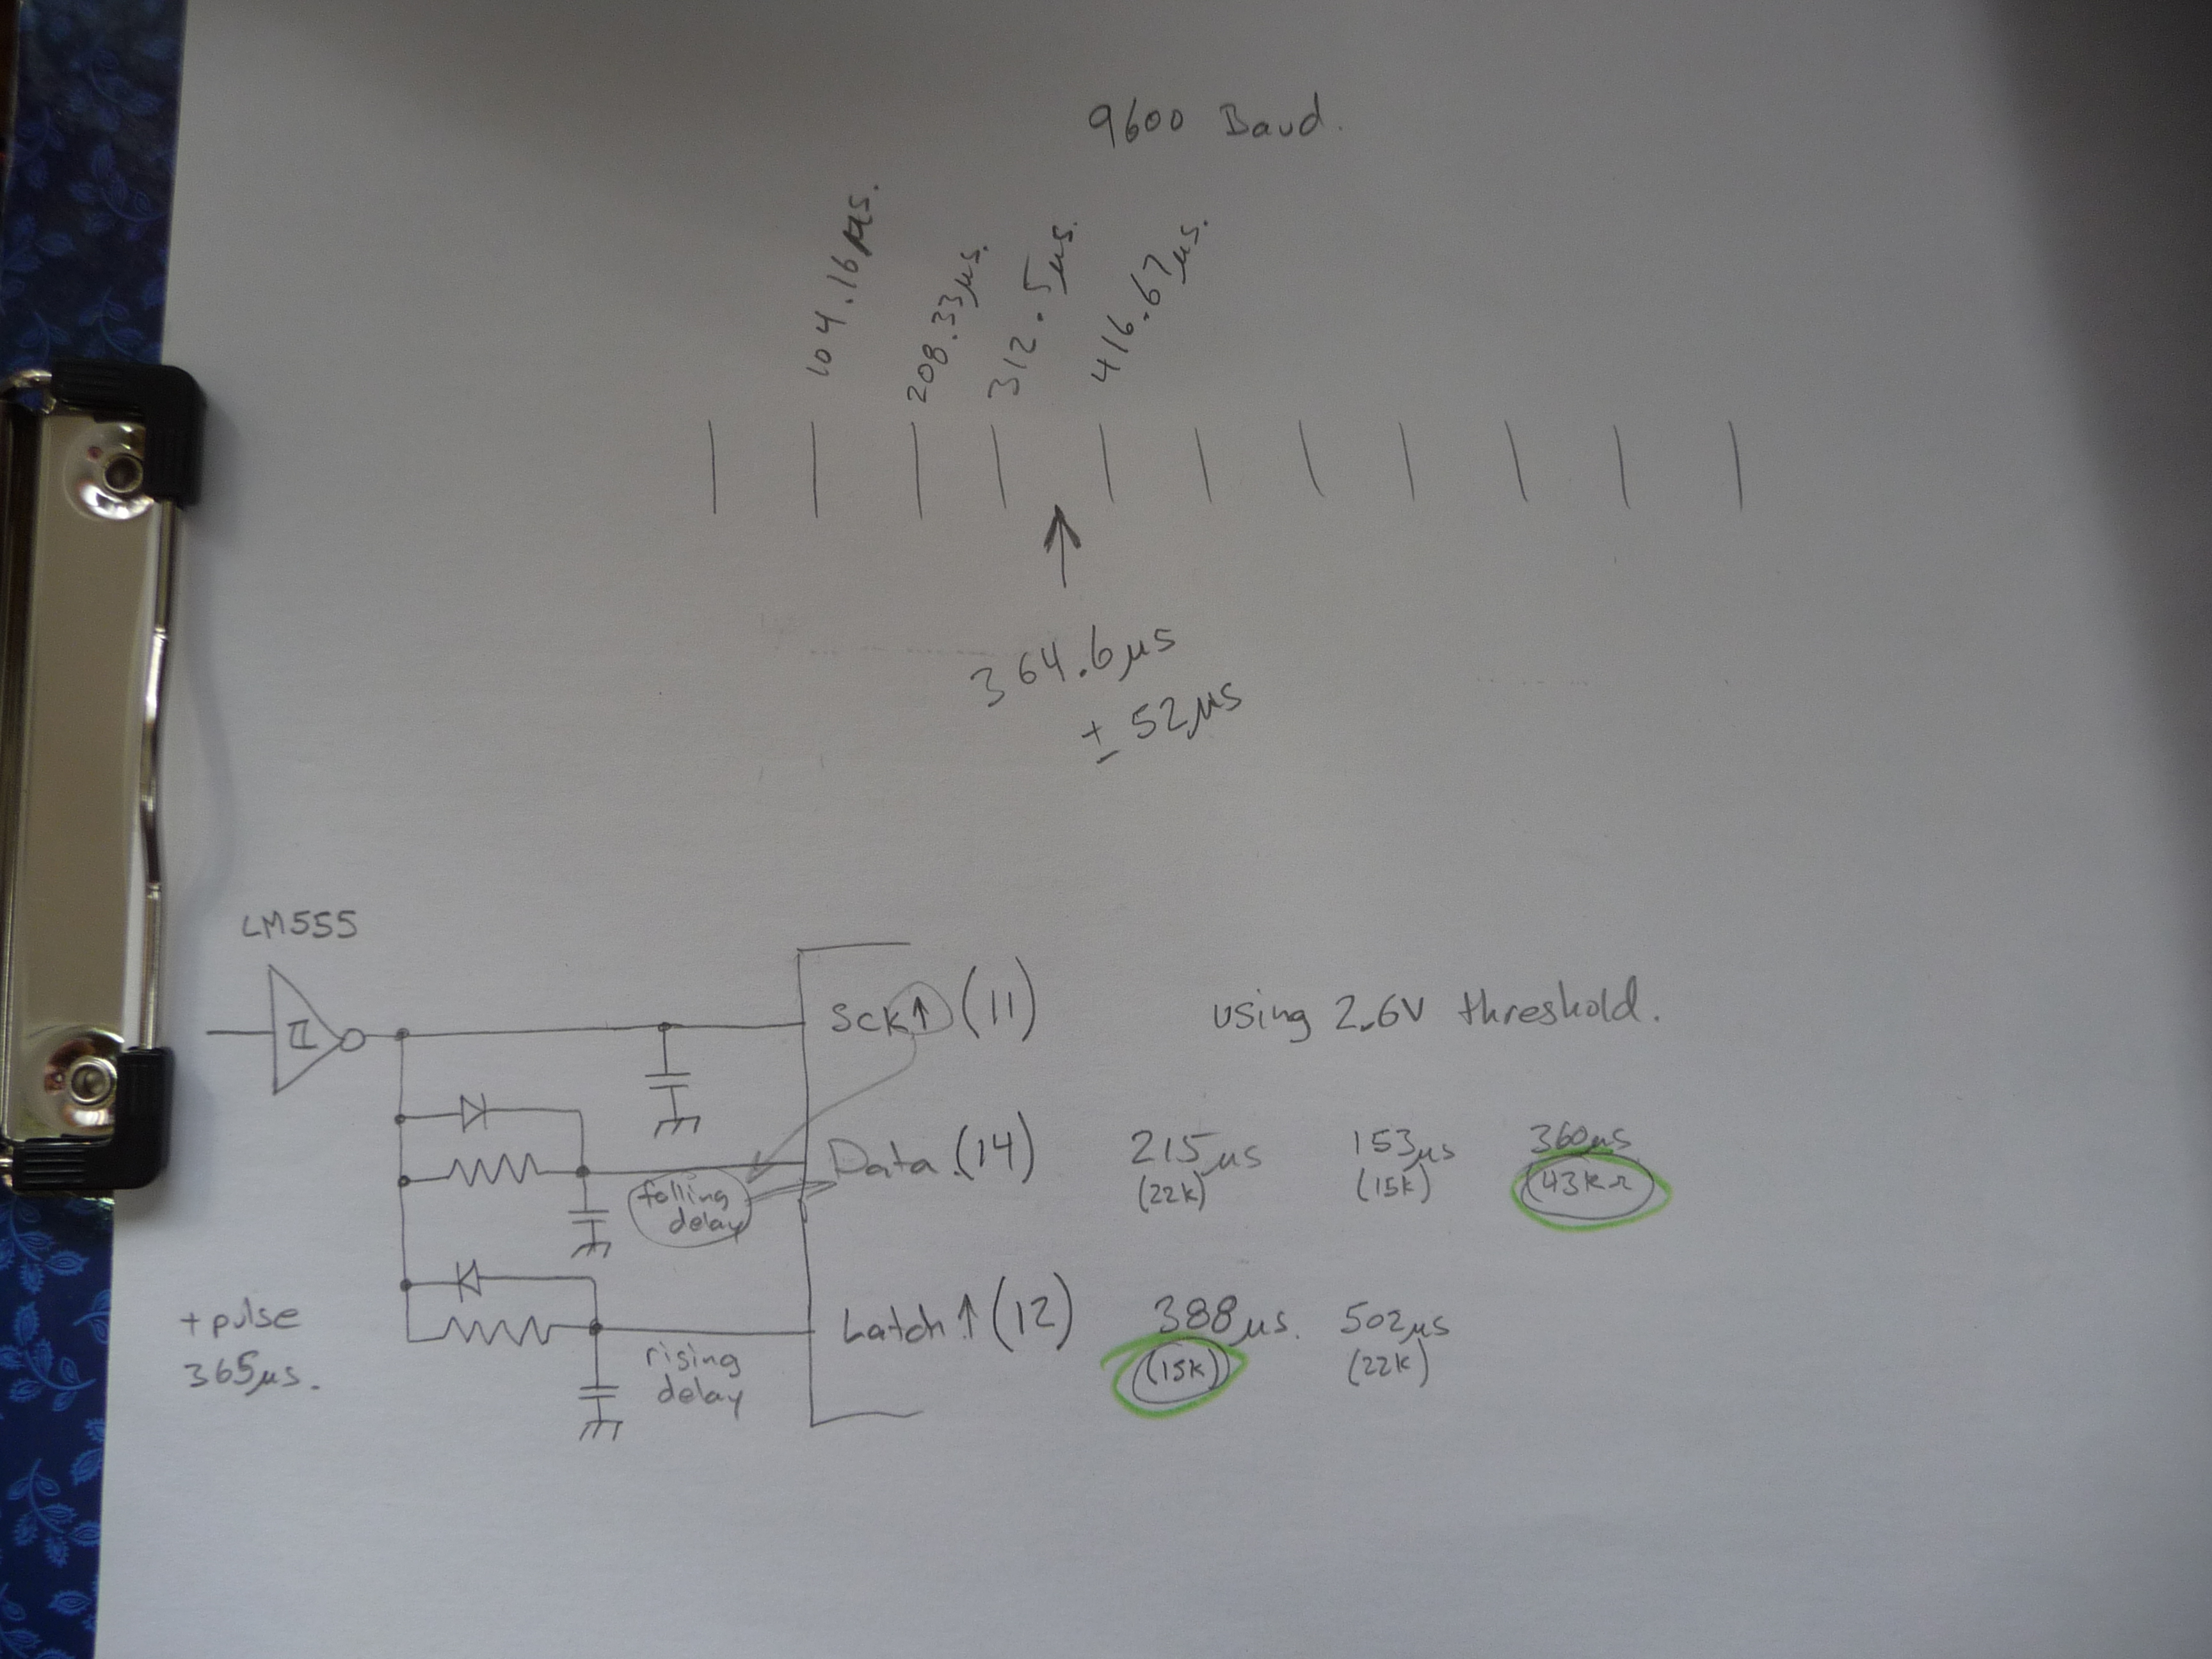 9600 Baud.
104.16µs.
208.33µs.
312.5µs.
416.67µs.
364.6µs
± 52µs
LM555
SCK↑ (11)
using 2.6V threshold.
Data (14)
215µs
(22k)
153µs
(15k)
360µs
(43kΩ)
falling
delay
Latch↑ (12)
388µs.
(15k)
502µs
(22k)
+ pulse
365µs.
rising
delay